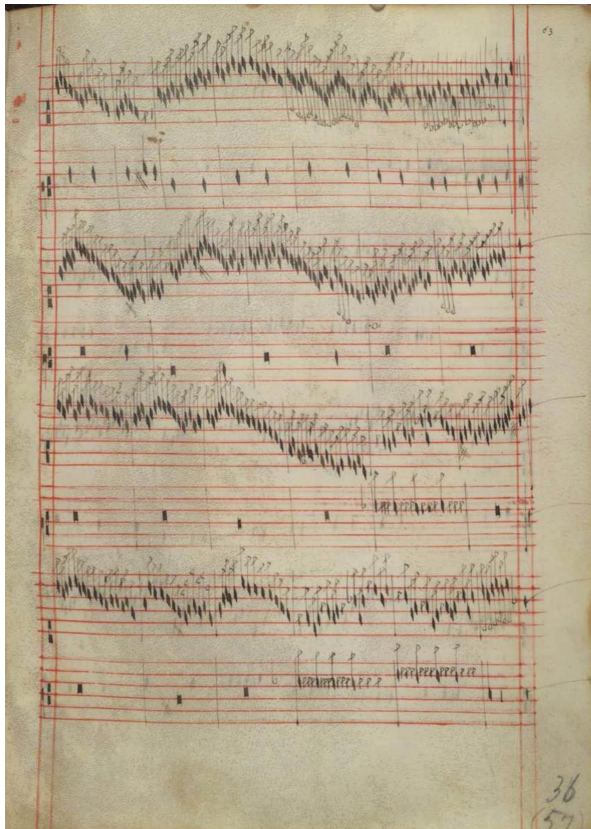 63
36
(57)